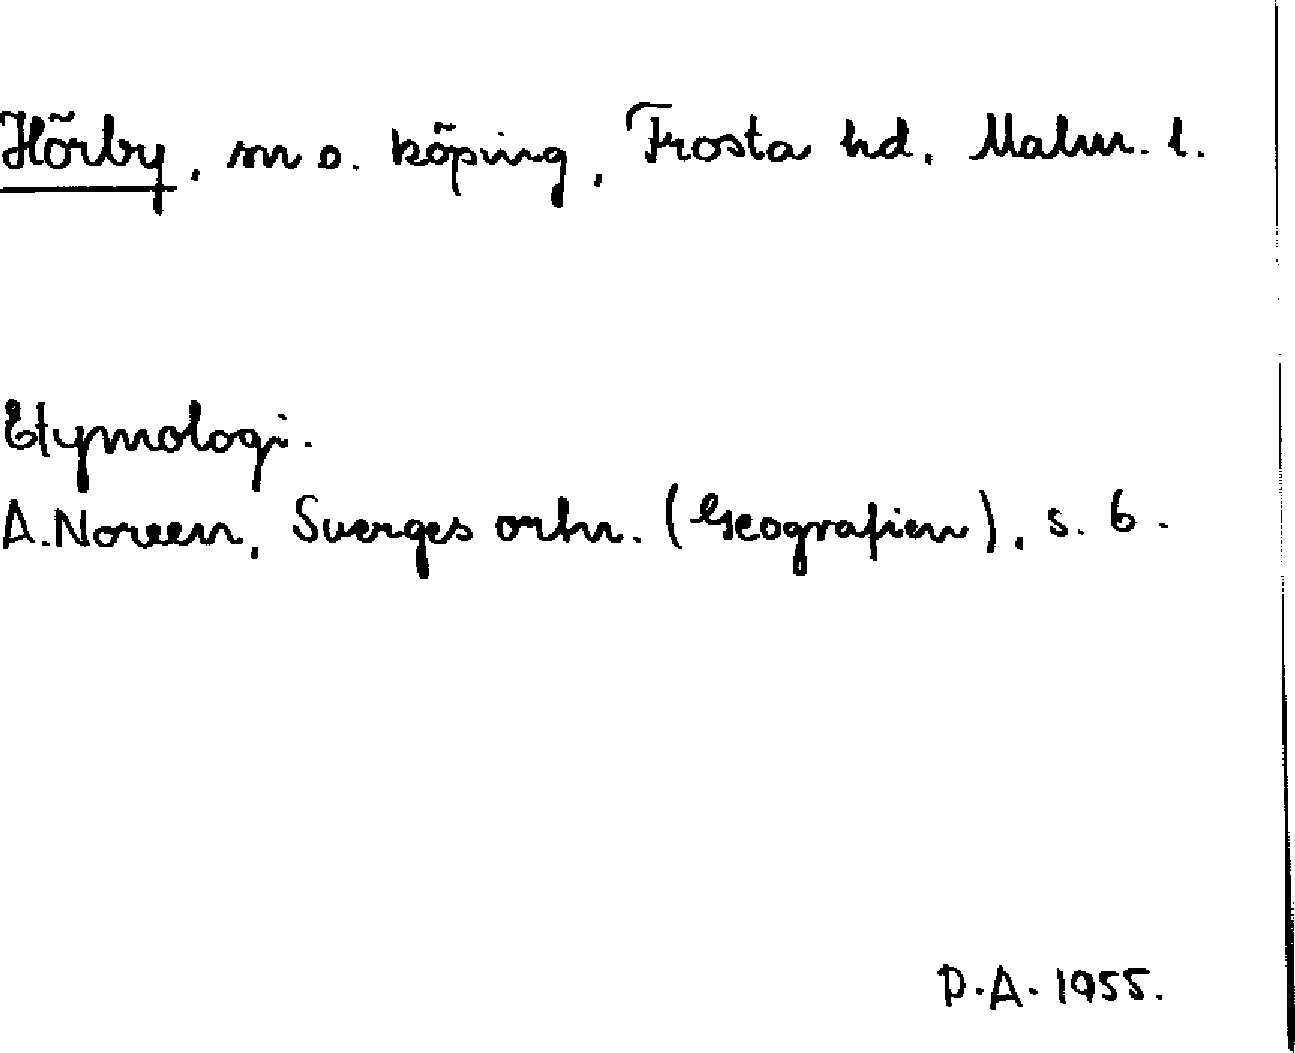 Hörby, sn o. köping, Frosta hd, Malm. l.
Etymologi.
A. Noreen, Sverges ortn. (Geografien), s. 6.
P.A. 1955.